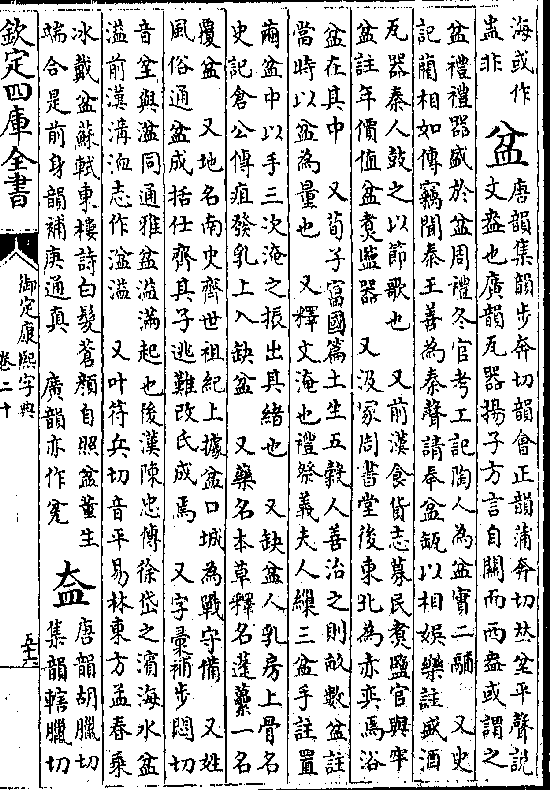 海或作
盇非
盆
唐韻集韻步奔切韻會正韻蒲奔切𠀤坌平聲說
文盎也廣韻瓦器揚子方言自關而西盎或謂之
盆禮禮器盛於盆周禮冬官考工記陶人為盆實二鬴 又史
記藺相如傳竊聞秦王善為秦聲請奉盆缻以相娛樂註盛酒
瓦器秦人鼓之以節歌也 又前漢食貨志募民煮鹽官與牢
盆註年價值盆煮鹽器 又汲冢周書堂後東北為赤奕焉浴
盆在其中 又荀子富國篇土生五穀人善治之則畝數盆註
當時以盆為量也 又釋文淹也禮祭義夫人繅三盆手註置
繭盆中以手三次淹之振出其緒也 又缺盆人乳房上骨名
史記倉公傳疽發乳上入缺盆 又藥名本草釋名蓬虆一名
覆盆 又地名南史齊世祖紀上據盆口城為戰守備 又姓
風俗通盆成括仕齊其子逃難改氏成焉 又字彙補步悶切
音坌與湓同通雅盆溢滿起也後漢陳忠傳徐岱之濱海水盆
溢前漢溝洫志作湓溢 又叶符兵切音平易林東方孟春乘
冰戴盆蘇軾東樓詩白髮蒼顔自照盆董生
端合是前身韻補庚通真 廣韻亦作㼜
𥁋
唐韻胡臘切
集韻轄臘切
欽定四庫全書
御定康熙字典
卷二十
五十六